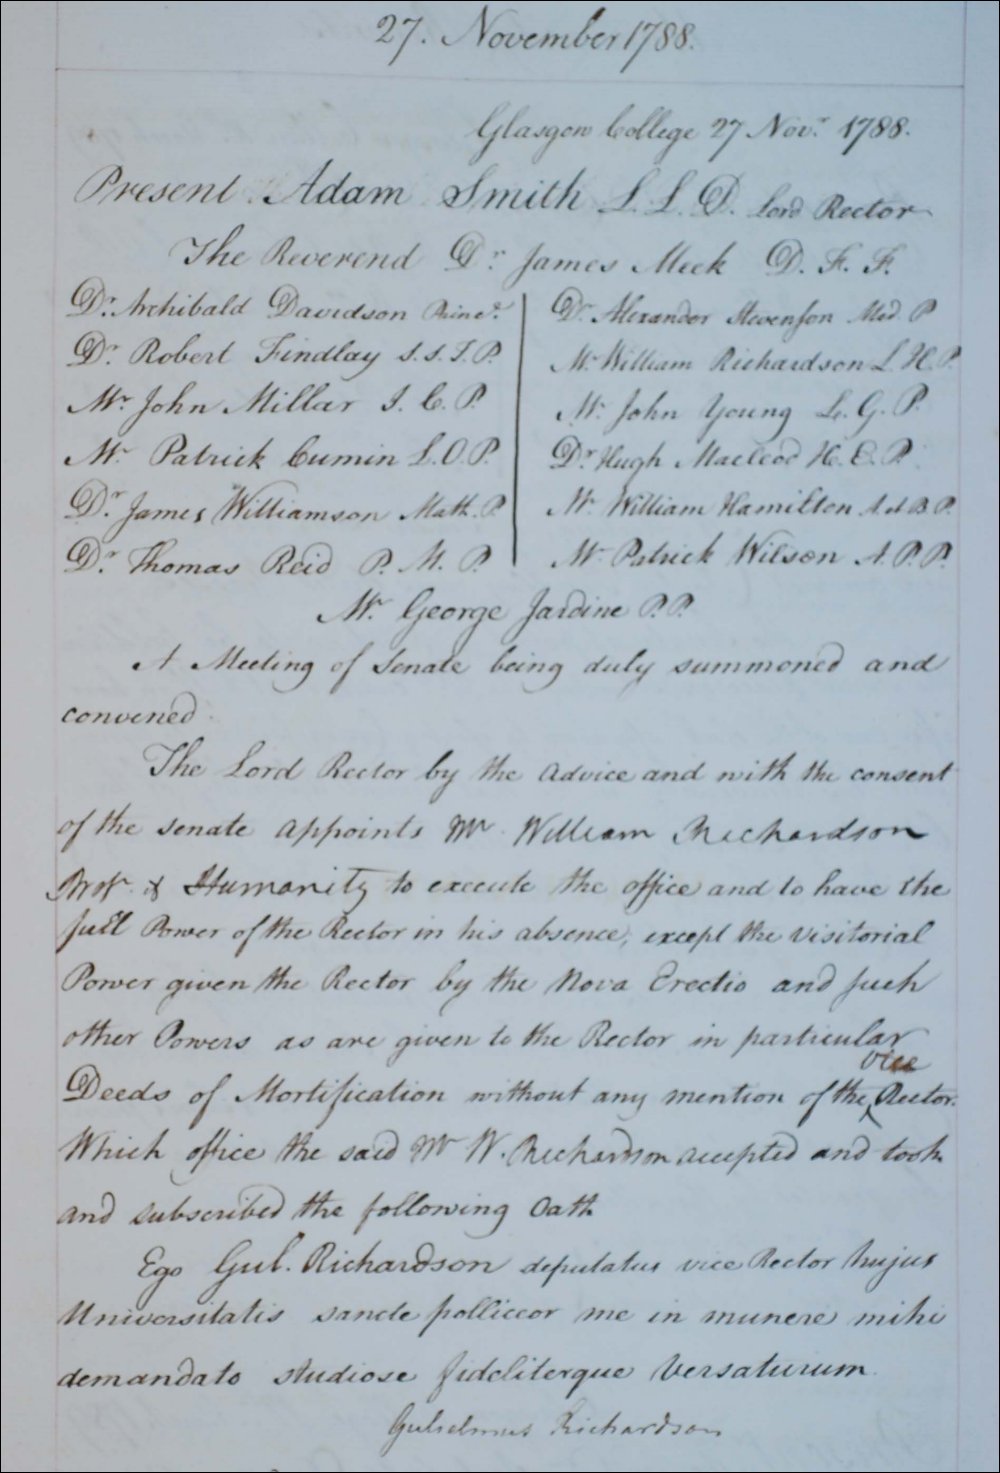 27. November 1788.
Glasgow College 27 Novr. 1788.
Present Adam Smith L. L. D. Lord Rector
The Reverend Dr. James Meek D. F. F.
Dr. Archibald Davidson Princl.
Dr. Robert Findlay S.S.T.P.
Mr. John Millar J. C. P.
Mr. Patrick Cumin L.O.P.
Dr. James Williamson Math. P.
Dr. Thomas Reid P. M. P.
Dr. Alexander Stevenson Med. P
Mr. William Richardson L. H. P.
Mr. John Young L. G. P.
Dr. Hugh Macleod H. E. P.
Mr. William Hamilton A. et B. P.
Mr. Patrick Wilson A. P. P.
Mr. George Jardine P. P.
A Meeting of Senate being duly summoned and
convened
The Lord Rector by the advice and with the consent
of the senate appoints Mr. William Richardson
Profr. of Humanity to execute the office and to have the
full Power of the Rector in his absence, except the visitorial
Power given the Rector by the Nova Erectio and such
other Powers as are given to the Rector in particular
Deeds of Mortification without any mention of the vice Rector.
Which office the said Mr W. Richardson accepted and took
and subscribed the following oath
Ego Gul. Richardson deputatus vice Rector hujus
Universitatis sancte polliceor me in munere mihi
demandato studiose fideliterque versaturum.
Gulielmus Richardson